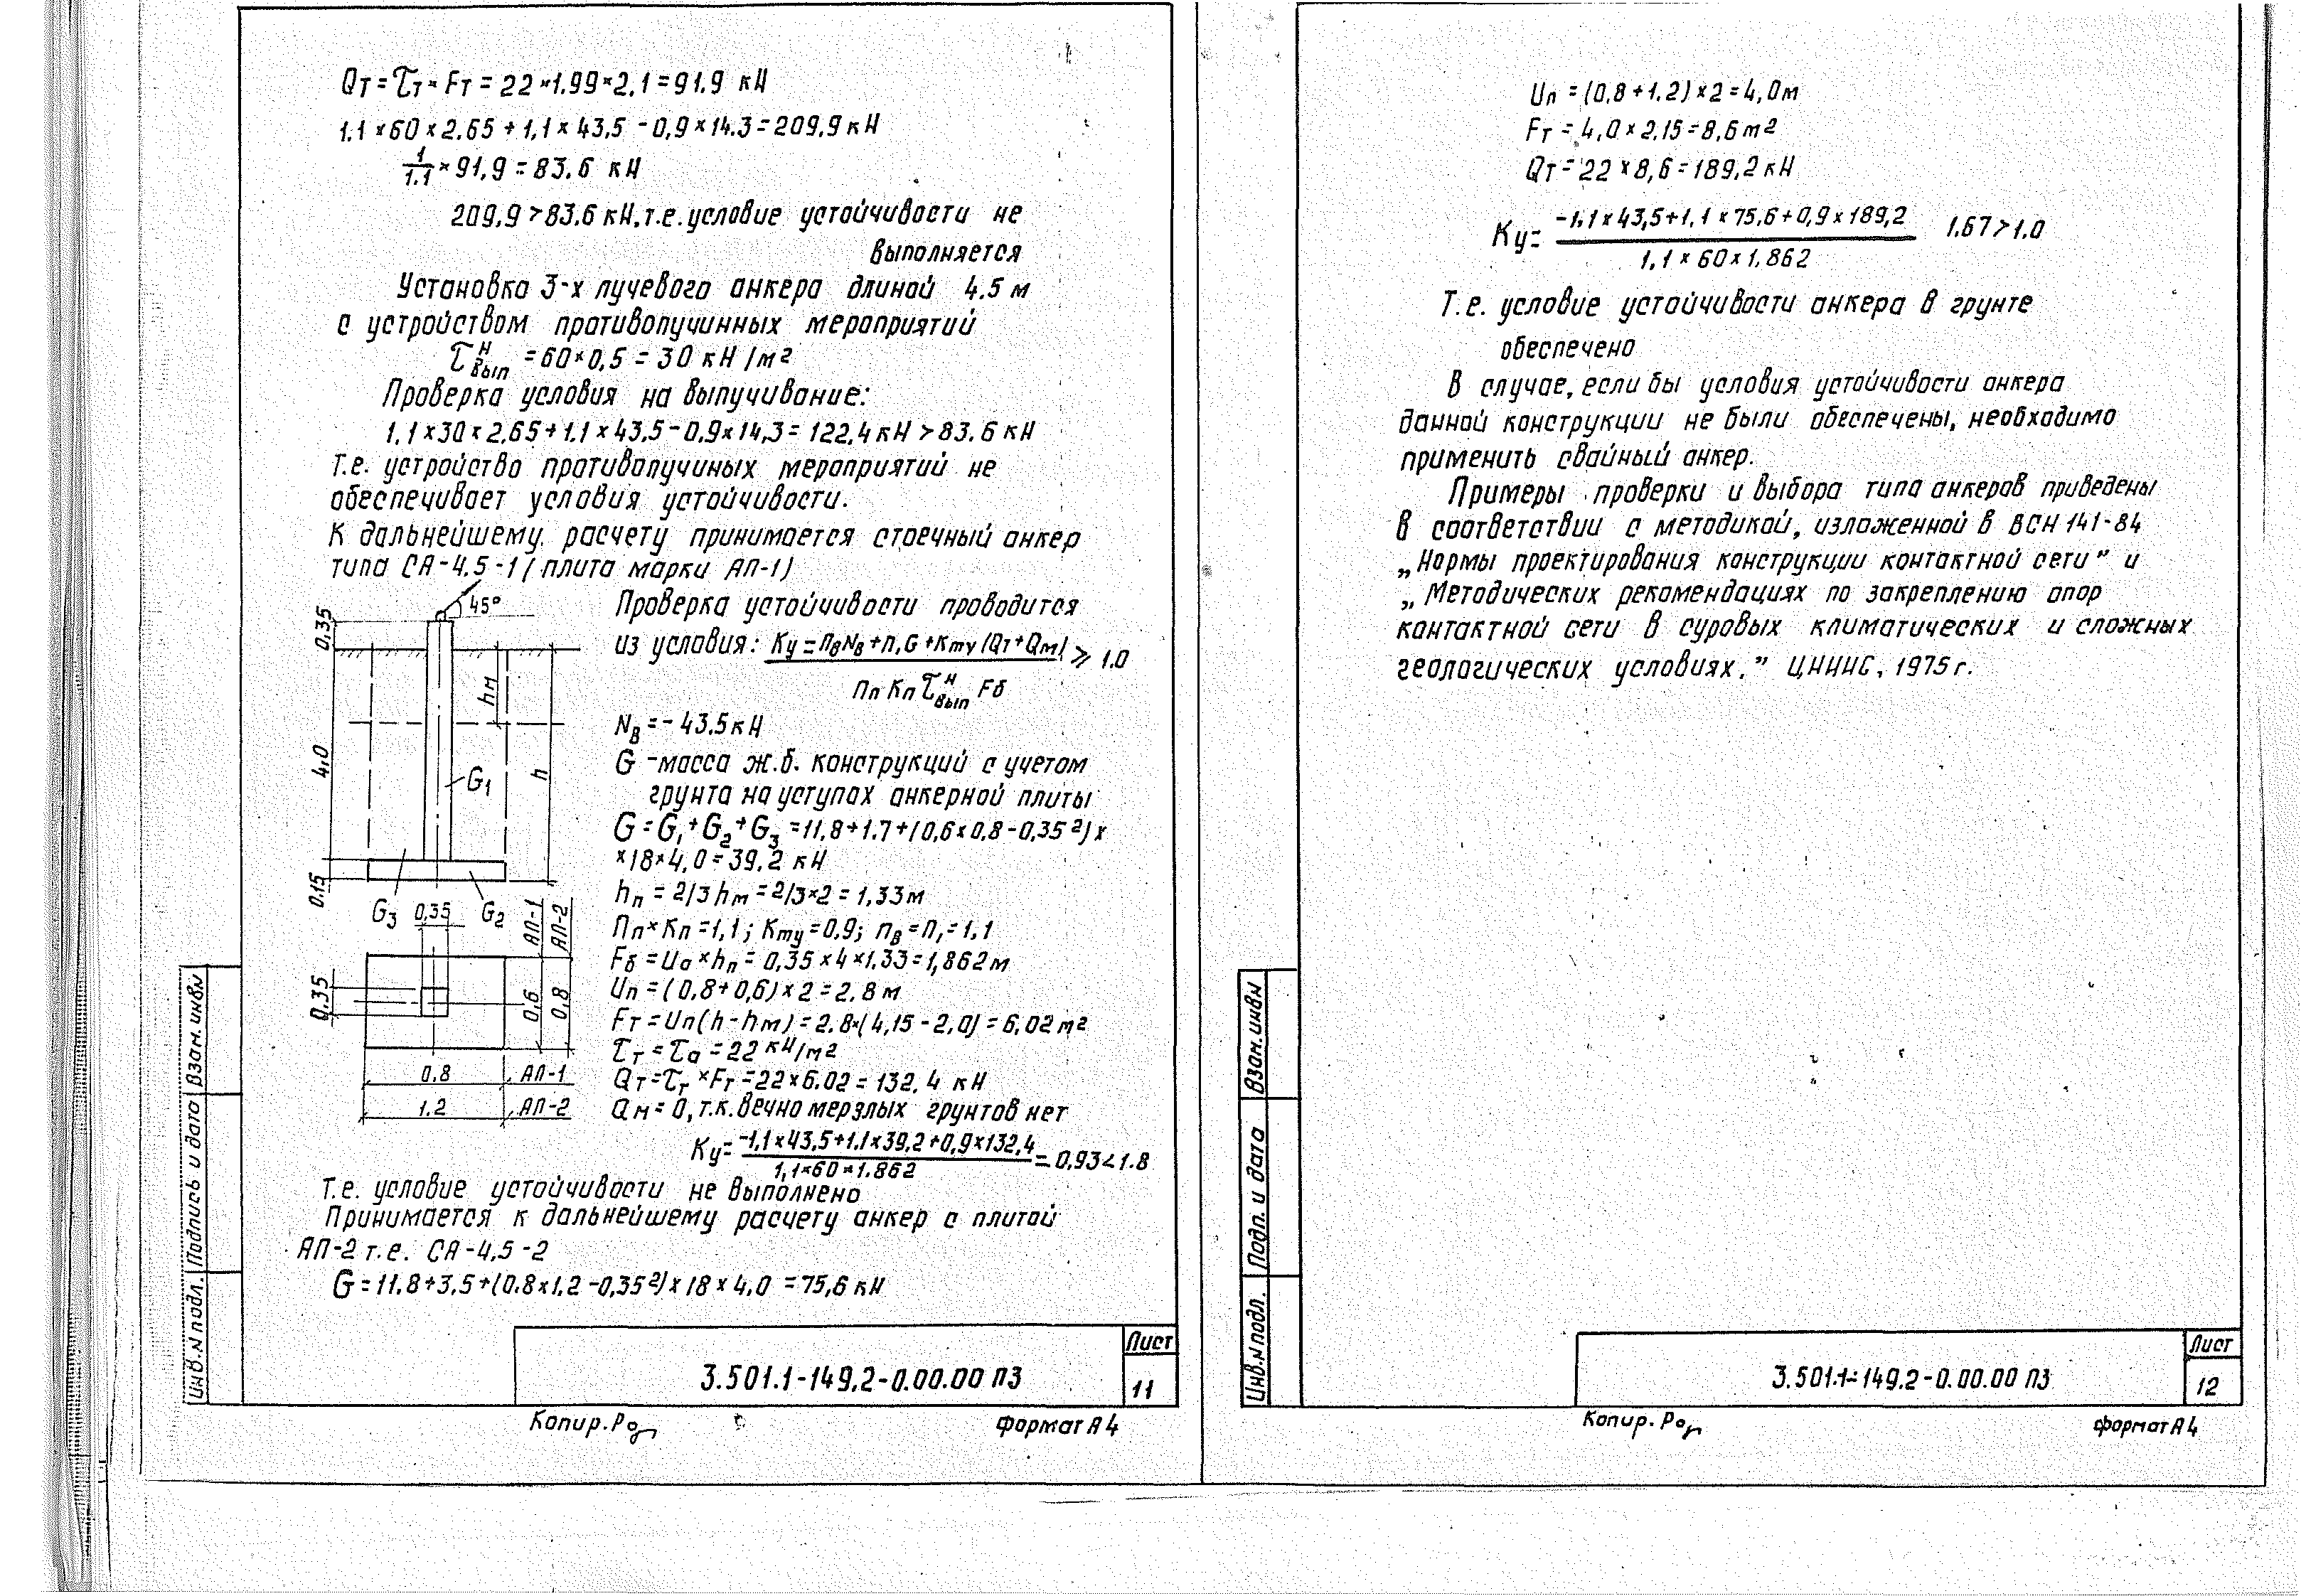 Qт = τт × Fт = 22 × 1.99 × 2,1 = 91.9 кН
1.1 × 60 × 2.65 + 1,1 × 43,5 - 0,9 × 14.3 = 209,9 кН
1/1.1 × 91,9 = 83.6 кН
209,9 > 83.6 кН, т.е. условие устойчивости не
выполняется
Установка 3-х лучевого анкера длиной 4.5 м
с устройством противопучинных мероприятий
τ н вып = 60 × 0,5 = 30 кН/м²
Проверка условия на выпучивание:
1.1 × 30 × 2,65 + 1.1 × 43,5 - 0,9 × 14,3 = 122,4 кН > 83.6 кН
Т.е. устройство противопучиных мероприятий не
обеспечивает условия устойчивости.
К дальнейшему расчету принимается стоечный анкер
типа СА-4.5-1 (плита марки АП-1)
45°
0,35
4,0
0,15
hм
h
G1
G3
G2
0,35
АП-1
АП-2
0,35
0,6
0,8
0.8
АП-1
1.2
АП-2
Проверка устойчивости проводится
из условия: Kу = nвNв + n,G + Kту (Qт + Qм) / nп Kп τ н вып Fб ⩾ 1.0
Nв = - 43.5 кН
G - масса ж.б. конструкций с учетом
грунта на уступах анкерной плиты
G = G1 + G2 + G3 = 11,8 + 1.7 + (0,6 × 0,8 - 0,35²) ×
× 18 × 4,0 = 39,2 кН
hп = 2/3 hм = 2/3 × 2 = 1,33 м
nп × Kп = 1,1; Kту = 0.9; nв = n, = 1.1
Fб = Uа × hп = 0,35 × 4 × 1.33 = 1,862 м
Uп = (0,8 + 0,6) × 2 = 2,8 м
Fт = Uп (h - hм) = 2.8 × (4,15 - 2,0) = 6,02 м²
τт = τа = 22 кН/м²
Qт = τт × Fт = 22 × 6.02 = 132,4 кН
Qм = 0, т.к. вечно мерзлых грунтов нет
Kу = -1,1 × 43,5 + 1.1 × 39,2 + 0,9 × 132,4 / 1,1 × 60 × 1.862 = 0,93 < 1.8
Т.е. условие устойчивости не выполнено
Принимается к дальнейшему расчету анкер с плитой
АП-2 т.е. СА-4,5-2
G = 11.8 + 3,5 + (0.8 × 1,2 - 0,35²) × 18 × 4,0 = 75,6 кН
Взам. инв№
Подпись и дата
Инв.№ подл.
3.501.1-149.2-0.00.00 ПЗ
Лист
11
Копир.
Формат А4
Uп = (0,8 + 1.2) × 2 = 4,0 м
Fт = 4,0 × 2,15 = 8,6 м²
Qт = 22 × 8,6 = 189,2 кН
Kу = -1,1 × 43,5 + 1,1 × 75,6 + 0,9 × 189,2 / 1,1 × 60 × 1.862 1.67 > 1.0
Т.е. условие устойчивости анкера в грунте
обеспечено
В случае, если бы условия устойчивости анкера
данной конструкции не были обеспечены, необходимо
применить свайный анкер.
Примеры проверки и выбора типа анкеров приведены
в соответствии с методикой, изложенной в ВСН 141-84
„Нормы проектирования конструкции контактной сети" и
„Методических рекомендациях по закреплению опор
контактной сети в суровых климатических и сложных
геологических условиях." ЦНИИС, 1975 г.
Взам. инв№
Подп. и дата
Инв.№ подл.
3.501.1-149.2-0.00.00 ПЗ
Лист
12
Копир.
формат А4